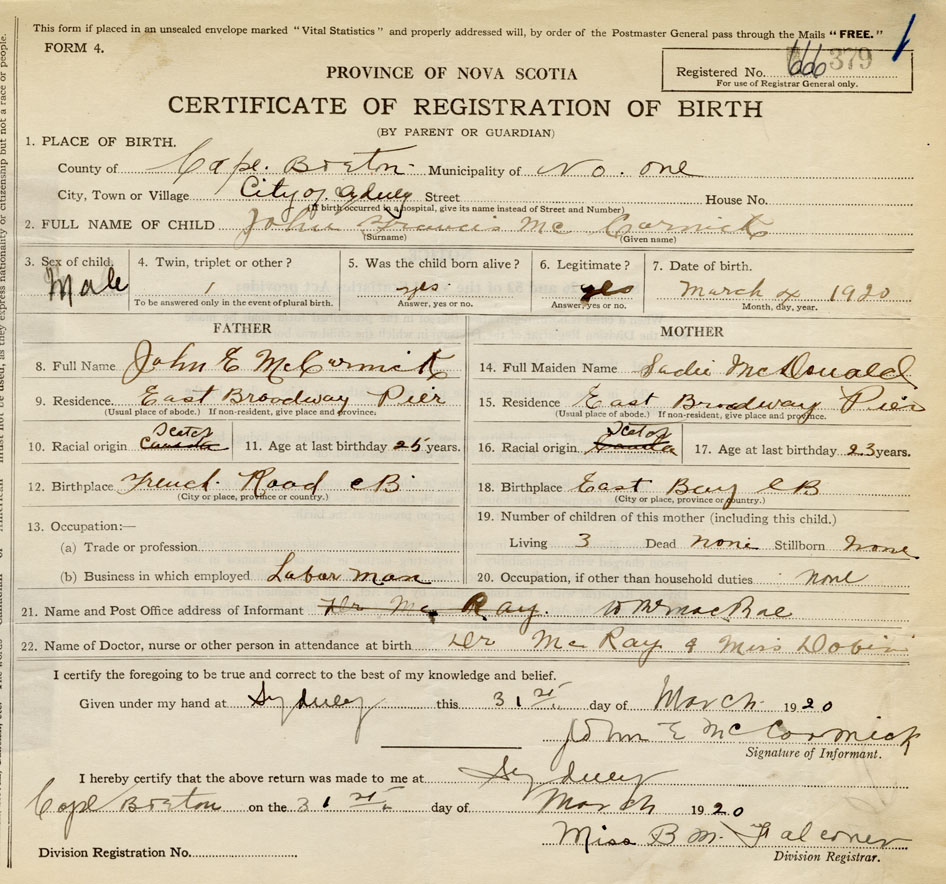 This form if placed in an unsealed envelope marked "Vital Statistics" and properly addressed will, by order of the Postmaster General pass through the Mails "FREE."
FORM 4.
Registered No. 666 379
For use of Registrar General only.
PROVINCE OF NOVA SCOTIA
CERTIFICATE OF REGISTRATION OF BIRTH
(BY PARENT OR GUARDIAN)
1. PLACE OF BIRTH.
County of Cape. Breton Municipality of No. one
City, Town or Village City of Sydney Street House No.
(If birth occurred in a hospital, give its name instead of Street and Number)
2. FULL NAME OF CHILD John Francis Mc Cormick
(Surname) (Given name)
3. Sex of child. Male 4. Twin, triplet or other? 1 5. Was the child born alive? yes 6. Legitimate? yes 7. Date of birth. March 4 1920
To be answered only in the event of plural birth. Answer, yes or no. Answer, yes or no. Month, day, year.
FATHER MOTHER
8. Full Name John E McCormick 14. Full Maiden Name Sadie McDonald
9. Residence. East Broadway Pier 15. Residence East Broadway Pier
(Usual place of abode.) If non-resident, give place and province. (Usual place of abode.) If non-resident, give place and province.
10. Racial origin Scotch 11. Age at last birthday 25 years. 16. Racial origin Scotch 17. Age at last birthday 23 years.
12. Birthplace French Road CB 18. Birthplace East Bay CB
(City or place, province or country.) (City or place, province or country.)
13. Occupation:— 19. Number of children of this mother (including this child.)
(a) Trade or profession Living 3 Dead none Stillborn None
(b) Business in which employed Labor man 20. Occupation, if other than household duties none
21. Name and Post Office address of Informant Dr Mc Ray. MacRae
22. Name of Doctor, nurse or other person in attendance at birth Dr Mc Ray & Miss Dobin
I certify the foregoing to be true and correct to the best of my knowledge and belief.
Given under my hand at Sydney this 31st day of March 1920
John E McCormick
Signature of Informant.
I hereby certify that the above return was made to me at Sydney
Cape Breton on the 31st day of March 1920
Miss B M. Falconer
Division Registration No. Division Registrar.